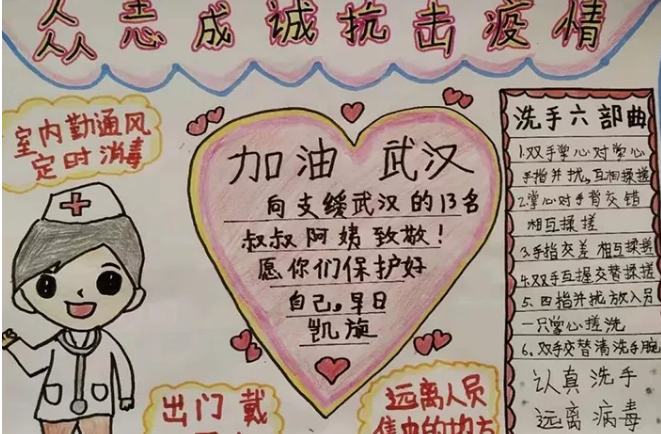 众志成诚抗击疫情
室内勤通风
定时消毒
加油 武汉
向支援武汉的13名
叔叔阿姨致敬!
愿你们保护好
自己。早日
凯旋
出门戴
远离人员
集中的地方
洗手六部曲
1.双手掌心对掌心
手指并拢,互相揉搓
2.掌心对手背交错
相互揉搓
3.手指交差相互揉搓
4.双手互握交替揉搓
5.四指并拢放入员
一只掌心搓洗
6.双手交替清洗手腕
认真洗手
远离病毒